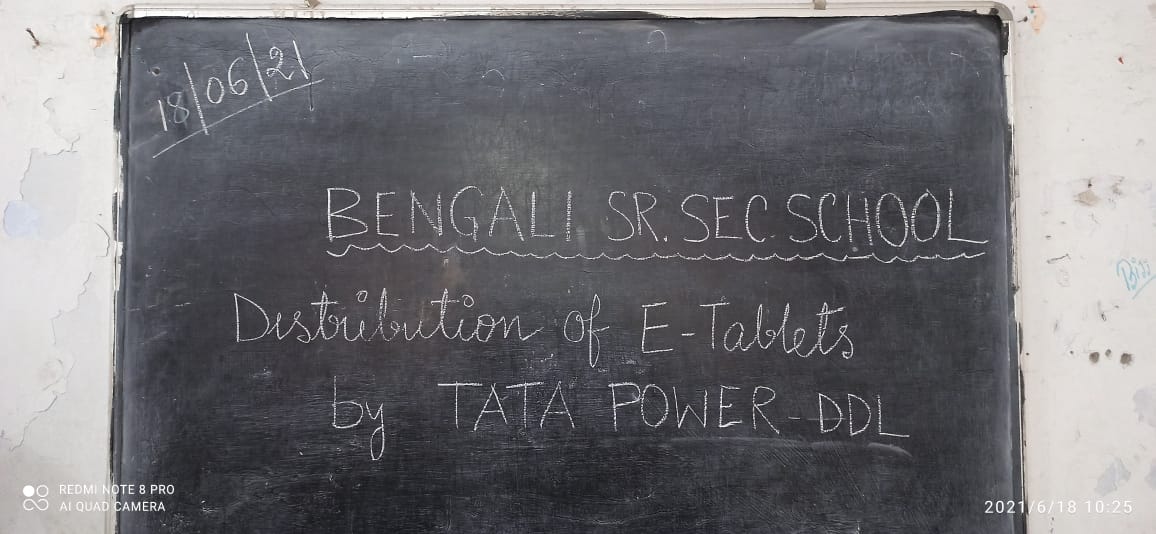 18/06/21
BENGALI SR. SEC. SCHOOL
Distribution of E-Tablets
by TATA POWER-DDL
REDMI NOTE 8 PRO
AI QUAD CAMERA
2021/6/18 10:25